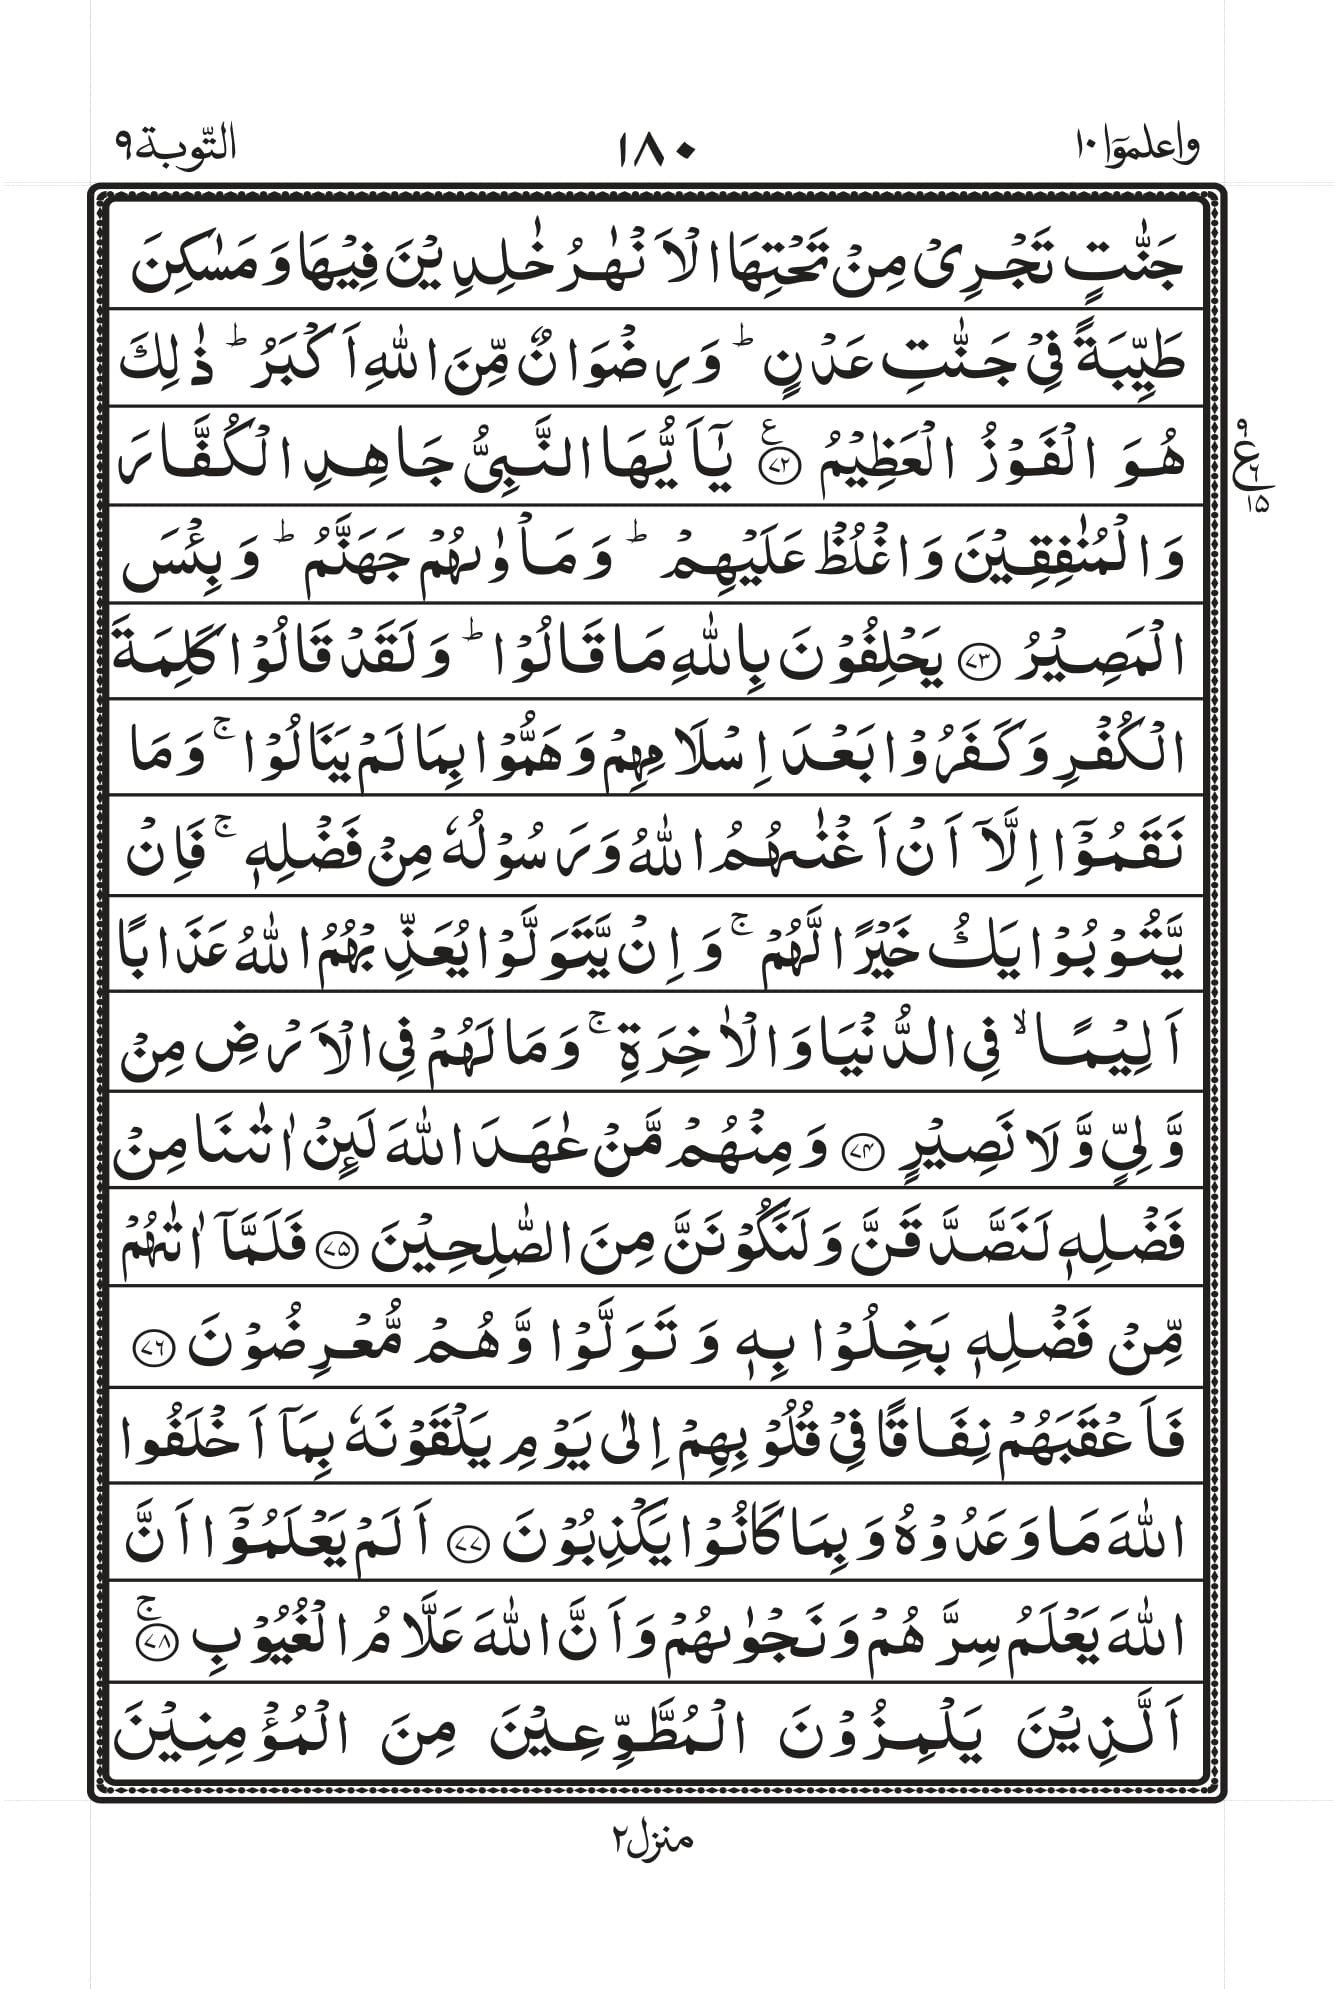 واعلموٓا ١٠
١٨٠
التّوبة ٩
جَنّٰتٍ تَجْرِىْ مِنْ تَحْتِهَا الْاَنْهٰرُ خٰلِدِيْنَ فِيْهَا وَ مَسٰكِنَ
طَيِّبَةً فِىْ جَنّٰتِ عَدْنٍ ؕ وَ رِضْوَانٌ مِّنَ اللّٰهِ اَكْبَرُ ؕ ذٰ لِكَ
هُوَ الْفَوْزُ الْعَظِيْمُ ۧ ﴿۷۲﴾ يٰۤاَيُّهَا النَّبِىُّ جَاهِدِ الْكُفَّارَ
ع
٩
٦
١٥
وَالْمُنٰفِقِيْنَ وَاغْلُظْ عَلَيْهِمْ ؕ وَ مَاْوٰٮهُمْ جَهَنَّمُ ؕ وَ بِئْسَ
الْمَصِيْرُ ﴿۷۳﴾ يَحْلِفُوْنَ بِاللّٰهِ مَا قَالُوْا ؕ وَلَقَدْ قَالُوْا كَلِمَةَ
الْكُفْرِ وَكَفَرُوْا بَعْدَ اِسْلَامِهِمْ وَهَمُّوْا بِمَا لَمْ يَنَالُوْا ۚ وَمَا
نَقَمُوْۤا اِلَّاۤ اَنْ اَغْنٰٮهُمُ اللّٰهُ وَرَسُوْلُهٗ مِنْ فَضْلِهٖ ۚ فَاِنْ
يَّتُوْبُوْا يَكُ خَيْرًا لَّهُمْ ۚ وَاِنْ يَّتَوَلَّوْا يُعَذِّبْهُمُ اللّٰهُ عَذَابًا
اَلِيْمًا ۙ فِى الدُّنْيَا وَالْاٰخِرَةِ ۚ وَمَا لَهُمْ فِى الْاَرْضِ مِنْ
وَّلِىٍّ وَّلَا نَصِيْرٍ ﴿۷۴﴾ وَمِنْهُمْ مَّنْ عٰهَدَ اللّٰهَ لَئِنْ اٰتٰٮنَا مِنْ
فَضْلِهٖ لَنَصَّدَّقَنَّ وَلَنَكُوْنَنَّ مِنَ الصّٰلِحِيْنَ ﴿۷۵﴾ فَلَمَّاۤ اٰتٰٮهُمْ
مِّنْ فَضْلِهٖ بَخِلُوْا بِهٖ وَتَوَلَّوْا وَّهُمْ مُّعْرِضُوْنَ ﴿۷۶﴾
فَاَعْقَبَهُمْ نِفَاقًا فِىْ قُلُوْبِهِمْ اِلٰى يَوْمِ يَلْقَوْنَهٗ بِمَاۤ اَخْلَفُوا
اللّٰهَ مَا وَعَدُوْهُ وَبِمَا كَانُوْا يَكْذِبُوْنَ ﴿۷۷﴾ اَلَمْ يَعْلَمُوْۤا اَنَّ
اللّٰهَ يَعْلَمُ سِرَّهُمْ وَنَجْوٰٮهُمْ وَاَنَّ اللّٰهَ عَلَّامُ الْغُيُوْبِ ۚ ﴿۷۸﴾
اَلَّذِيْنَ يَلْمِزُوْنَ الْمُطَّوِّعِيْنَ مِنَ الْمُؤْمِنِيْنَ
منزل ٢